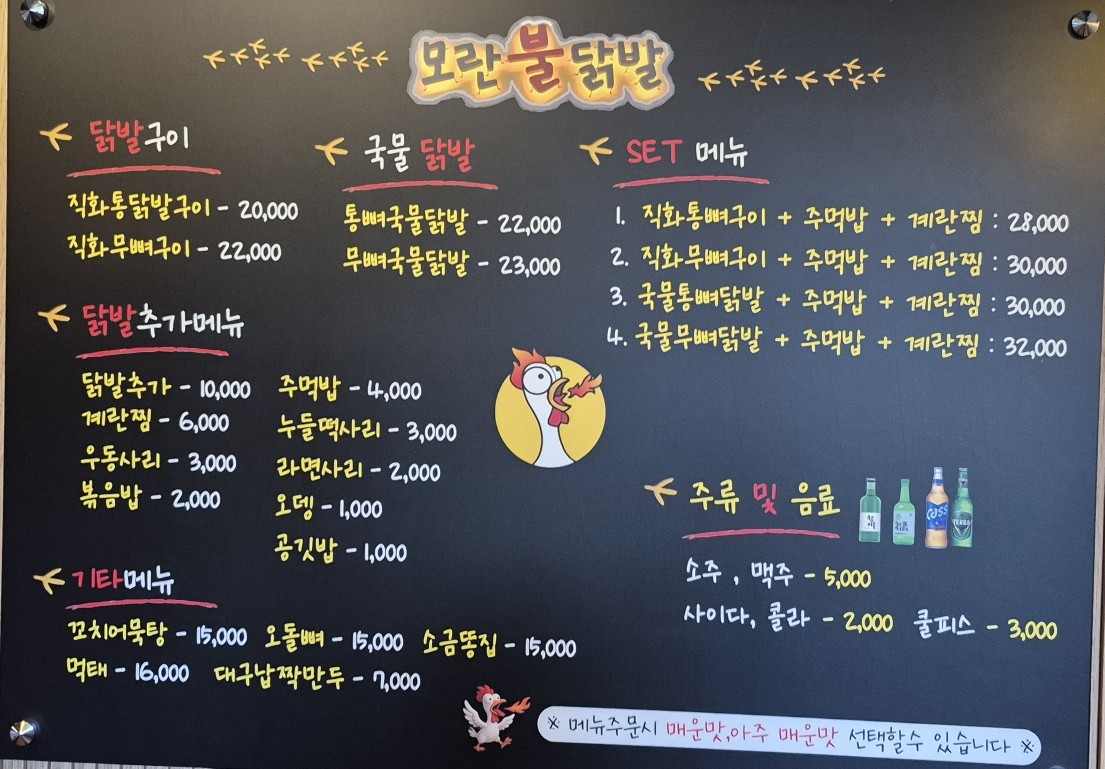 모란불닭발
닭발구이
직화통닭발구이 - 20,000
직화무뼈구이 - 22,000
국물 닭발
통뼈국물닭발 - 22,000
무뼈국물닭발 - 23,000
SET 메뉴
1. 직화통뼈구이 + 주먹밥 + 계란찜 : 28,000
2. 직화무뼈구이 + 주먹밥 + 계란찜 : 30,000
3. 국물통뼈닭발 + 주먹밥 + 계란찜 : 30,000
4. 국물무뼈닭발 + 주먹밥 + 계란찜 : 32,000
닭발추가메뉴
닭발추가 - 10,000
계란찜 - 6,000
우동사리 - 3,000
볶음밥 - 2,000
주먹밥 - 4,000
누들떡사리 - 3,000
라면사리 - 2,000
오뎅 - 1,000
공깃밥 - 1,000
기타메뉴
꼬치어묵탕 - 15,000 오돌뼈 - 15,000 소금똥집 - 15,000
먹태 - 16,000 대구납짝만두 - 7,000
주류 및 음료
CASS
TERRA
소주 , 맥주 - 5,000
사이다, 콜라 - 2,000 쿨피스 - 3,000
※ 메뉴주문시 매운맛,아주 매운맛 선택할수 있습니다 ※